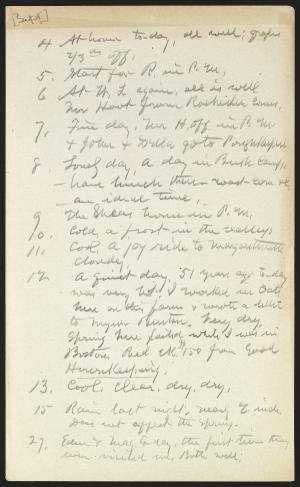 [Sept]
4 At home to-day, all well; grapes
2/3 ds off,
5. Start for R. in P.M,
6 At W. L again, all is well
Mr Hoot from Rochester comes,
7, Fine day, Mr H, off in P.M
& John & go to Poughkeepsie
8 Lovely day, a day in Bush Camp,
– have lunch there – roast corn &c,
– an ideal time,
9 The Sheas home in P.M.
10. Cold, a frost in the valleys
11, Cool, a joy ride to
cloudy,
12. A quiet day, 51 years ago to-day
was very hot, I worked in Oats
here on this farm & wrote a letter
to Myron Benton. Very dry,
Spring here failed while I was in
Boston. Recd ck. $150 from Good
Housekeeping,
13. Cool, clear, dry, dry,
15 Rain last night, nearly 1/2 inch
Does not affect the Spring.
27, & Mag to-day, the first time they
ever visited us. Both well;